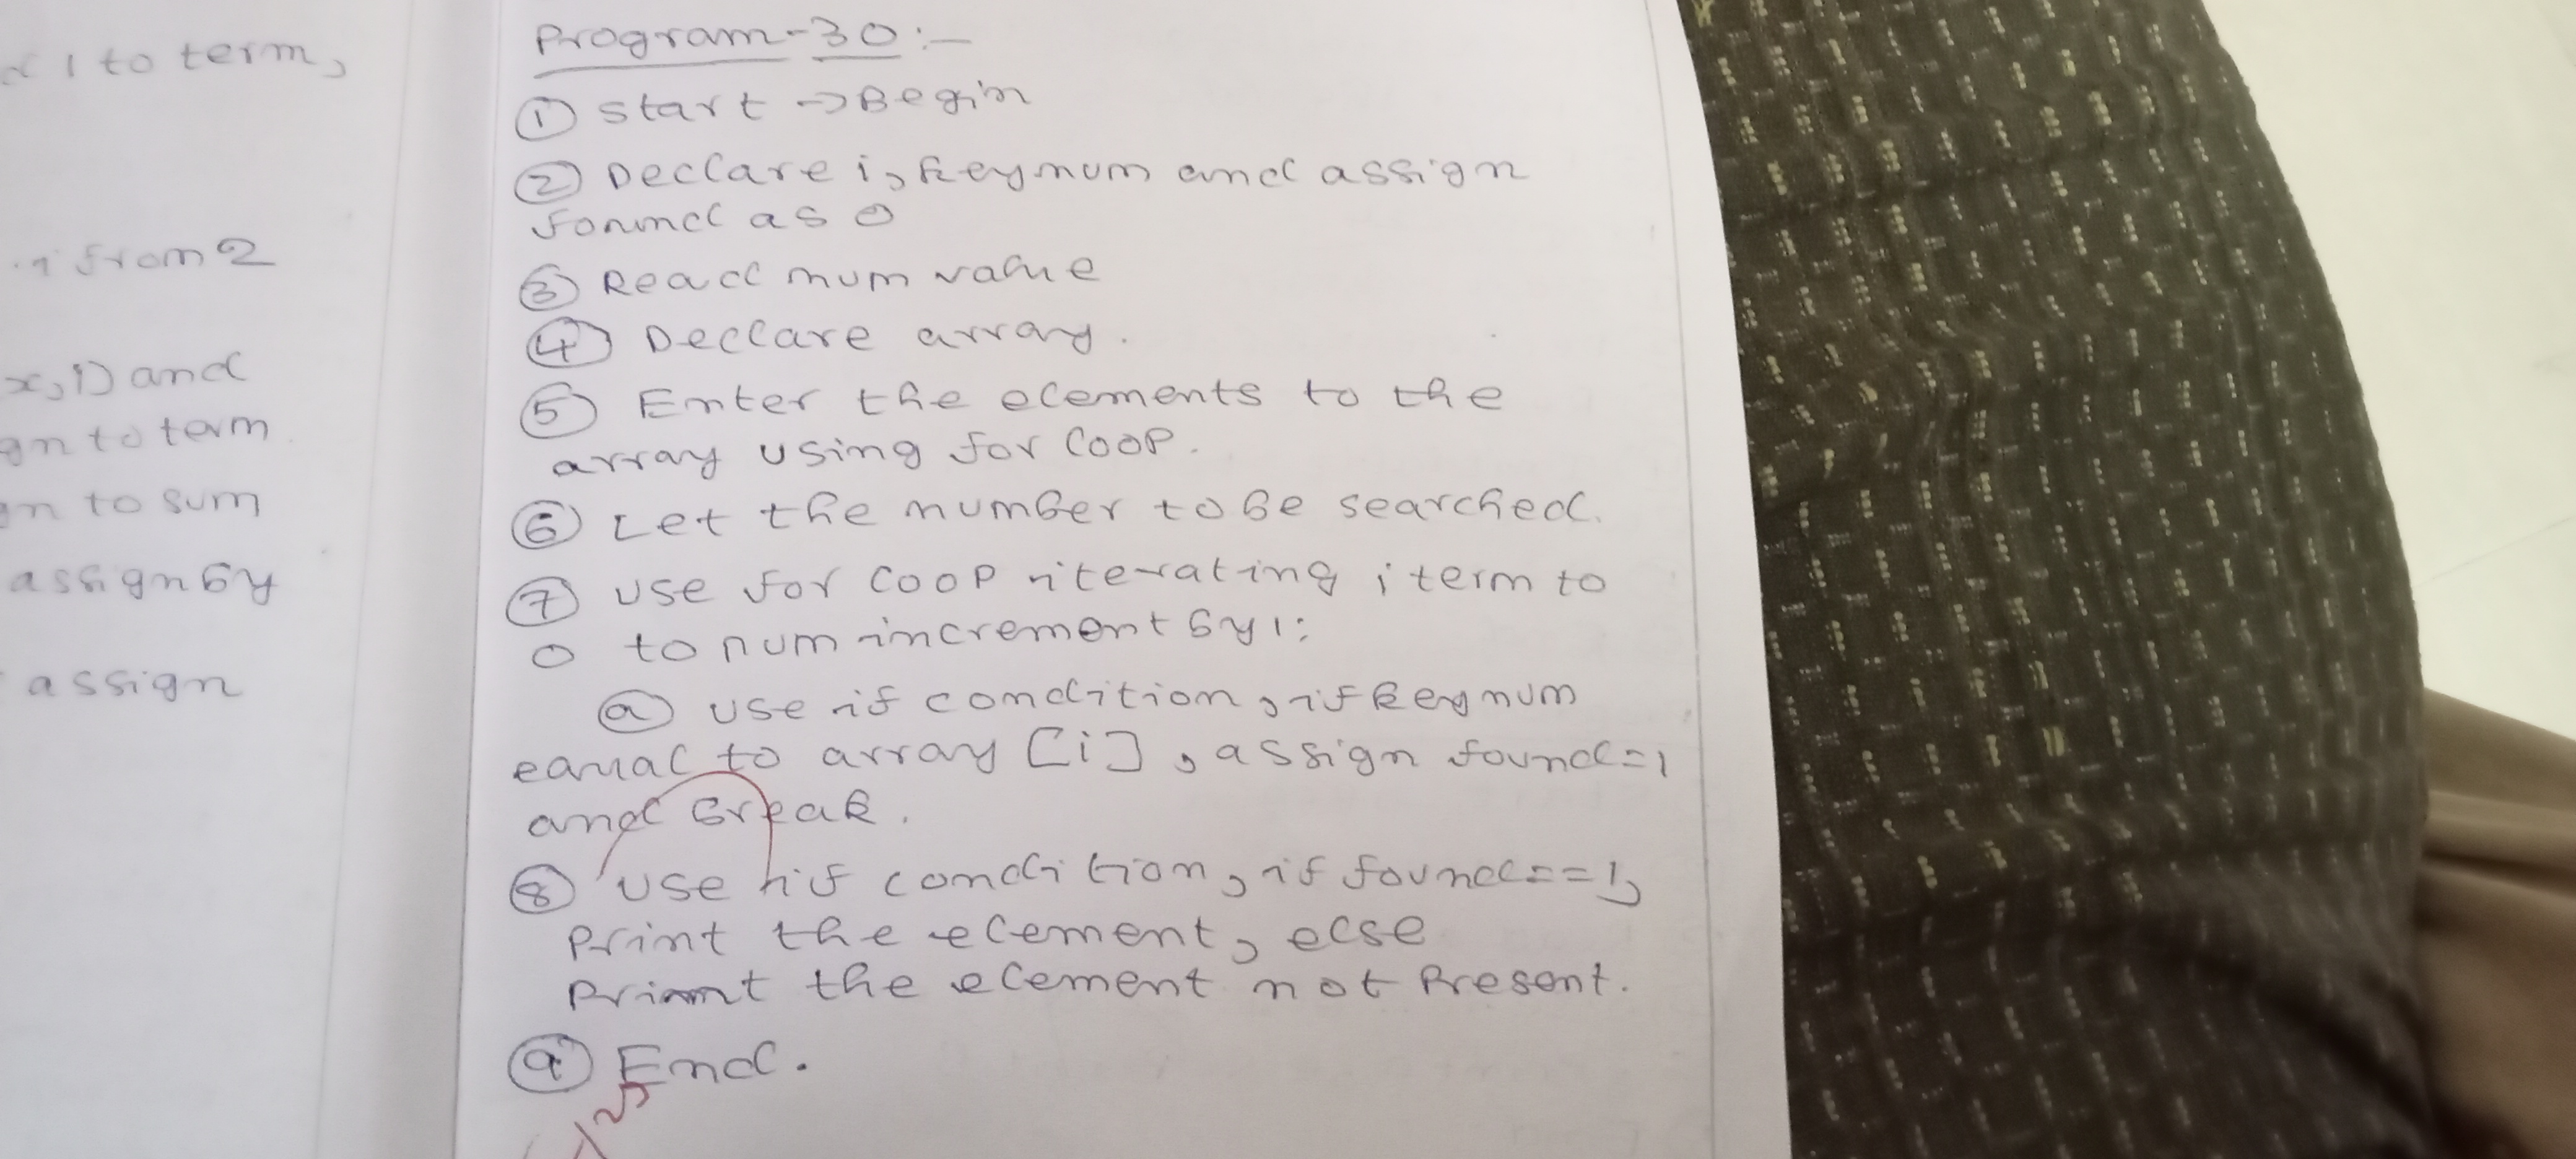 1 to term,
from 2
x, i) and
gn to term
gn to sum
assign by
assign
Program-30:-
① Start → Begin
② Declare i, keynum and assign
found as 0
③ Read num value
④ Declare array.
⑤ Enter the elements to the
array using for loop.
⑥ Let the number to be searched.
⑦ use for loop iterating i term to
0 to num increment by 1:
ⓐ use if condition, if keynum
equal to array [i], assign found=1
and break.
⑧ use if condition, if found==1,
Print the element, else
Print the element not Present.
⑨ End.